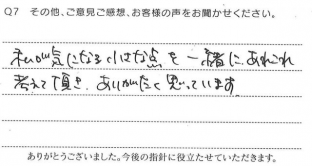 Q7 その他、ご意見ご感想、お客様の声をお聞かせください。
私が気になる小さな点を一緒に、あれこれ
考えて頂き、ありがたく思っています。
ありがとうございました。今後の指針に役立たせていただきます。